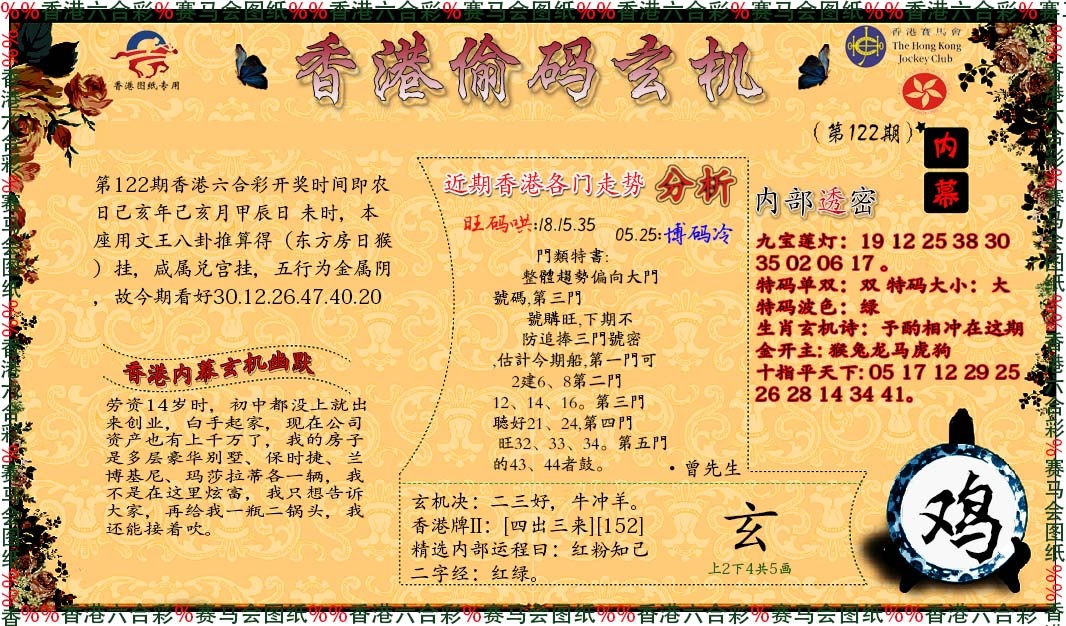 %%香港六合彩%赛马会图纸%%香港六合彩%赛马会图纸%%香港六合彩%赛马会图纸%%香港六合彩%赛马会图纸%%香港六合彩%赛
香港图纸专用
香港偷码玄机
香港賽馬會
The Hong Kong
Jockey Club
（第122期）
内
幕
第122期香港六合彩开奖时间即农
日己亥年己亥月甲辰日 未时，本
座用文王八卦推算得（东方房日猴
）挂，咸属兑宫挂，五行为金属阴
，故今期看好30.12.26.47.40.20
香港内幕玄机幽默
劳资14岁时，初中都没上就出
来创业，白手起家，现在公司
资产也有上千万了，我的房子
是多层豪华别墅、保时捷、兰
博基尼、玛莎拉蒂各一辆，我
不是在这里炫富，我只想告诉
大家，再给我一瓶二锅头，我
还能接着吹。
近期香港各门走势 分析
旺码哄:18.15.35
05.25:博码冷
門類特書:
整體趨勢偏向大門
號碼,第三門
號購旺,下期不
防追捧三門號密
,估計今期船,第一門可
2建6、8第二門
12、14、16。第三門
聽好21、24,第四門
旺32、33、34。第五門
的43、44者鼓。
·曾先生
玄机决：二三好，牛冲羊。
香港牌II：[四出三来][152]
精选内部运程日：红粉知己
二字经：红绿。
玄
上2下4共5画
内部透密
九宝莲灯：19 12 25 38 30
35 02 06 17 。
特码单双：双 特码大小：大
特码波色：绿
生肖玄机诗：予酌相冲在这期
金开主: 猴兔龙马虎狗
十指平天下: 05 17 12 29 25
26 28 14 34 41。
鸡
香%%香港六合彩%赛马会图纸%%香港六合彩%赛马会图纸%%香港六合彩%赛马会图纸%%香港六合彩%赛马会图纸%%香港六合彩%